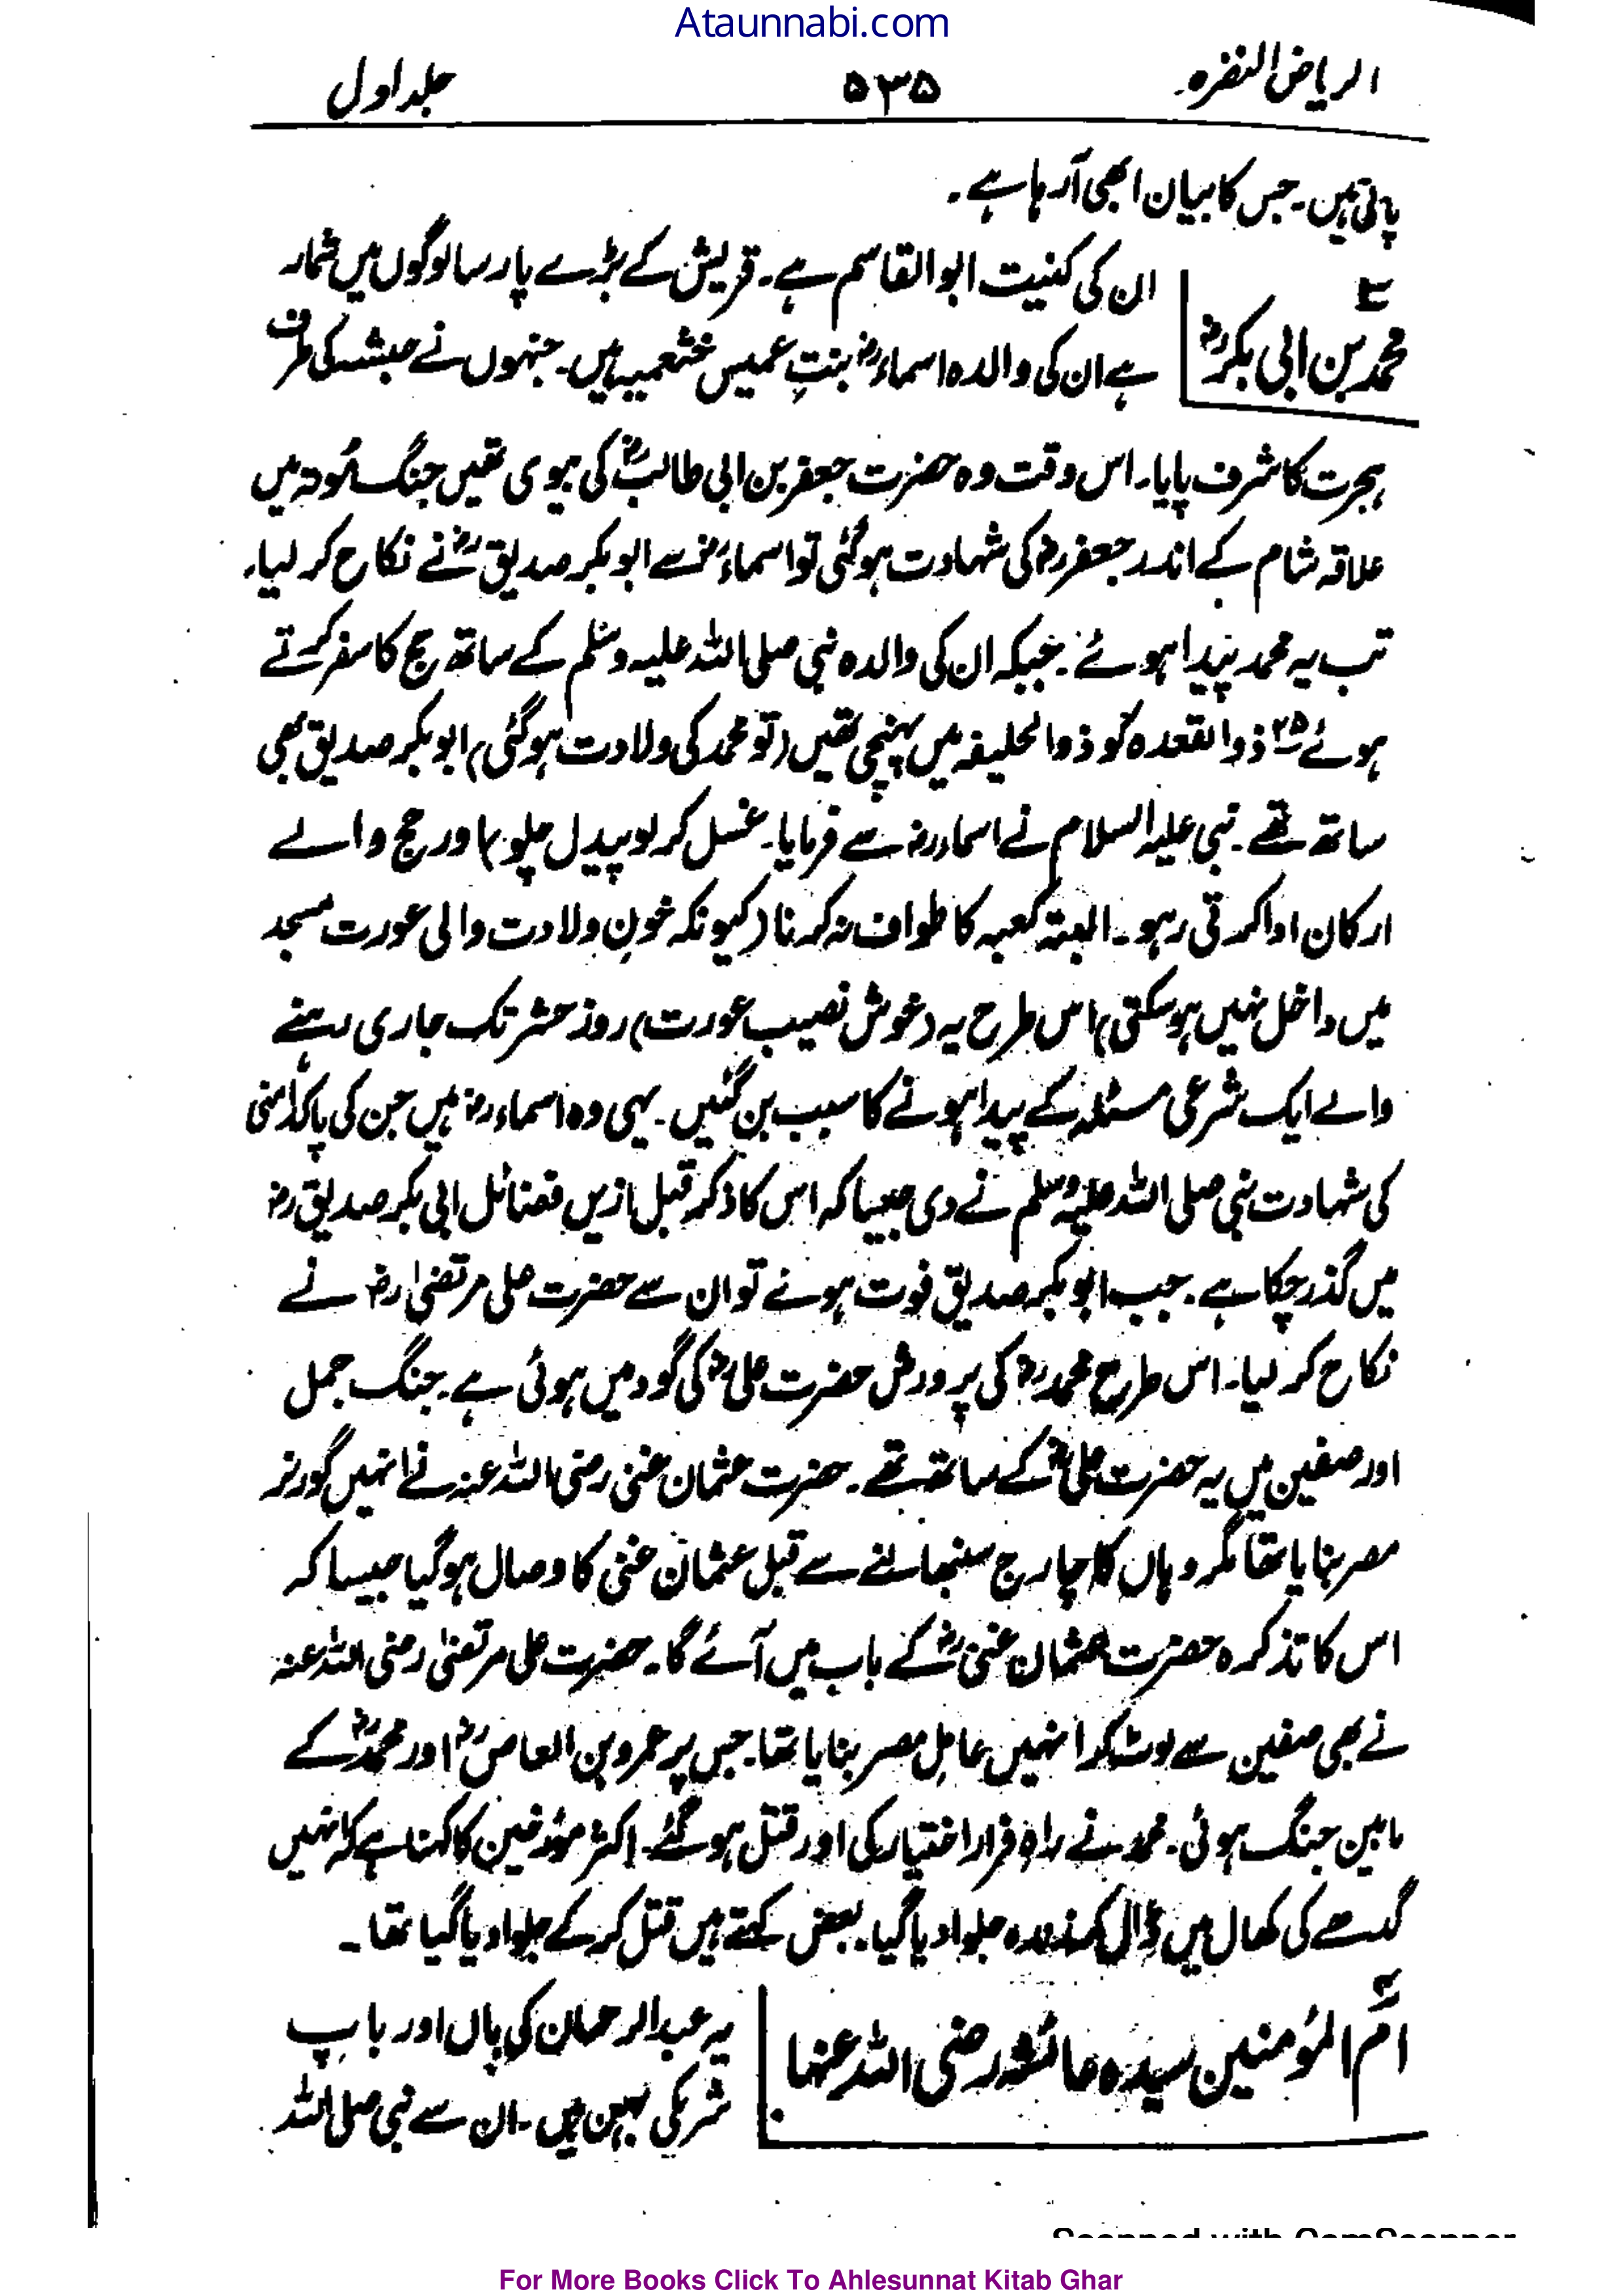 Ataunnabi.com
الریاض النضرہ ۵۳۵ جلد اول
پاتی ہیں۔ جس کا بیان ابھی آرہا ہے۔
۳
محمد بن ابی بکرؓ
ان کی کنیت ابوالقاسم ہے۔ قریش کے بڑے پارسا لوگوں میں شمار
ہے ان کی والدہ اسماءؓ بنتِ عمیس خثعمیہ ہیں۔ جنہوں نے حبشہ کی طرف
ہجرت کا شرف پایا۔ اس وقت وہ حضرت جعفر بن ابی طالبؓ کی بیوی تھیں جنگ مُوتہ میں
علاقہ شام کے اندر جعفرؓ کی شہادت ہوگئی تو اسماءؓ سے ابوبکر صدیقؓ نے نکاح کر لیا۔
تب یہ محمد پیدا ہوئے۔ جبکہ ان کی والدہ نبی صلی اللہ علیہ وسلم کے ساتھ حج کا سفر کرتے
ہوئے ۲۵ ذوالقعدہ کو ذوالحلیفہ میں پہنچی تھیں (تو محمد کی ولادت ہوگئی) ابوبکر صدیق بھی
ساتھ تھے۔ نبی علیہ السلام نے اسماءؓ سے فرمایا۔ غسل کر لو پیدل چلو، اور حج والے
ارکان ادا کرتی رہو۔ البتہ کعبہ کا طواف نہ کرنا (کیونکہ خونِ ولادت والی عورت مسجد
میں داخل نہیں ہوسکتی) اس طرح یہ (خوش نصیب عورت) روز حشر تک جاری رہنے
والے ایک شرعی مسئلہ کے پیدا ہونے کا سبب بن گئیں۔ یہی وہ اسماءؓ ہیں جن کی پاکدامنی
کی شہادت نبی صلی اللہ علیہ وسلم نے دی جیسا کہ اس کا ذکر قبل ازیں فضائل ابی بکر صدیقؓ
میں گذر چکا ہے۔ جب ابوبکر صدیق فوت ہوئے تو ان سے حضرت علی مرتضیٰؓ نے
نکاح کر لیا۔ اس طرح محمدؓ کی پرورش حضرت علیؓ کی گود میں ہوئی ہے۔ جنگ جمل
اور صفین میں یہ حضرت علیؓ کے ساتھ تھے۔ حضرت عثمان غنی رضی اللہ عنہ نے انہیں گورنر
مصر بنایا تھا مگر وہاں کا چارج سنبھالنے سے قبل عثمان غنی کا وصال ہوگیا جیسا کہ
اس کا تذکرہ حضرت عثمان غنیؓ کے باب میں آئے گا۔ حضرت علی مرتضیٰ رضی اللہ عنہ
نے بھی صفین سے لوٹ کر انہیں عاملِ مصر بنایا تھا۔ جس پر عمرو بن العاصؓ اور محمدؓ کے
مابین جنگ ہوئی۔ محمد نے راہِ فرار اختیار کی اور قتل ہوگئے۔ اکثر مؤرخین کا کہنا ہے کہ انہیں
گدھے کی کھال میں ڈال کر زندہ جلوا دیا گیا۔ بعض کہتے ہیں قتل کر کے جلوا دیا گیا تھا۔
اُم المؤمنین سیدہ عائشہ رضی اللہ عنہا
یہ عبدالرحمان کی ماں اور باپ
شریکی بہن ہیں۔ ان سے نبی صلی اللہ
Scanned with CamScanner
For More Books Click To Ahlesunnat Kitab Ghar